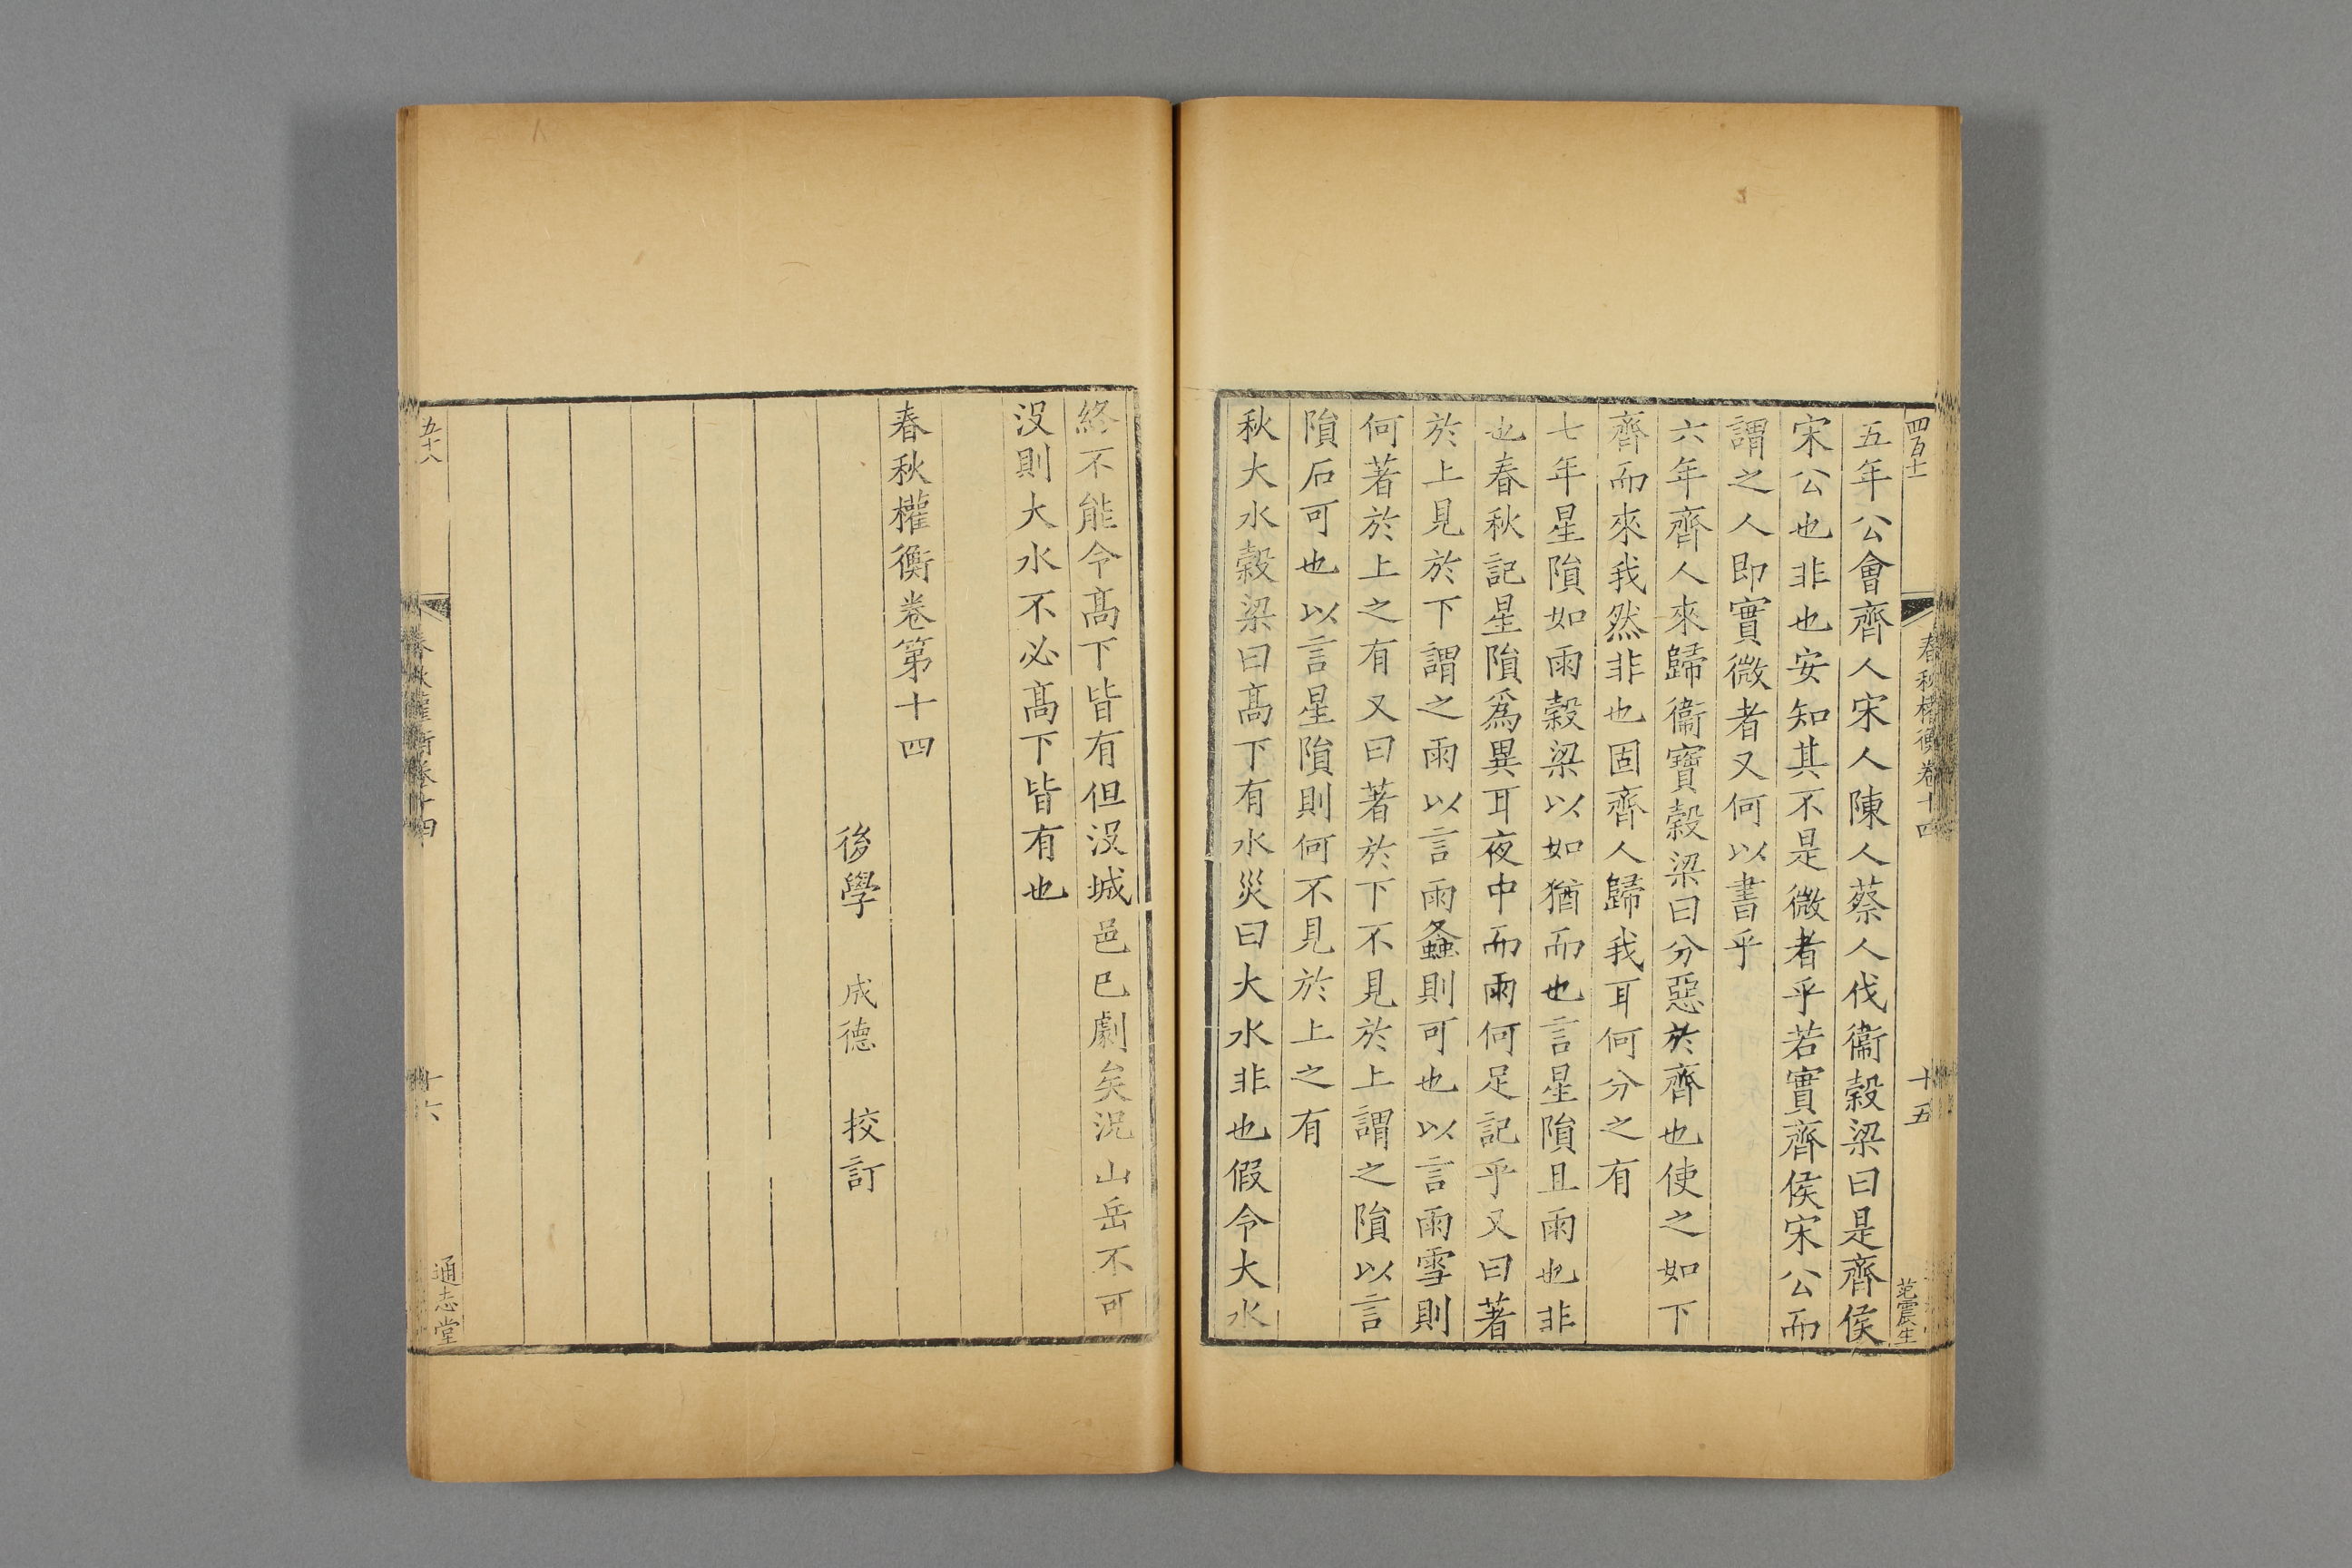 四百十
春秋權衡卷十四
十五
范震生
五年公會齊人宋人陳人蔡人伐衞穀梁曰是齊侯
宋公也非也安知其不是微者乎若實齊侯宋公而
謂之人即實微者又何以書乎
六年齊人來歸衞寶穀梁曰分惡於齊也使之如下
齊而來我然非也固齊人歸我耳何分之有
七年星隕如雨穀梁以如猶而也言星隕且雨也非
也春秋記星隕爲異耳夜中而雨何足記乎又曰著
於上見於下謂之雨以言雨螽則可也以言雨雪則
何著於上之有又曰著於下不見於上謂之隕以言
隕石可也以言星隕則何不見於上之有
秋大水穀梁曰高下有水災曰大水非也假令大水
終不能令高下皆有但沒城邑已劇矣況山岳不可
沒則大水不必高下皆有也
春秋權衡卷第十四
後學 成德 挍訂
五十八
春秋權衡卷十四
十六
通志堂